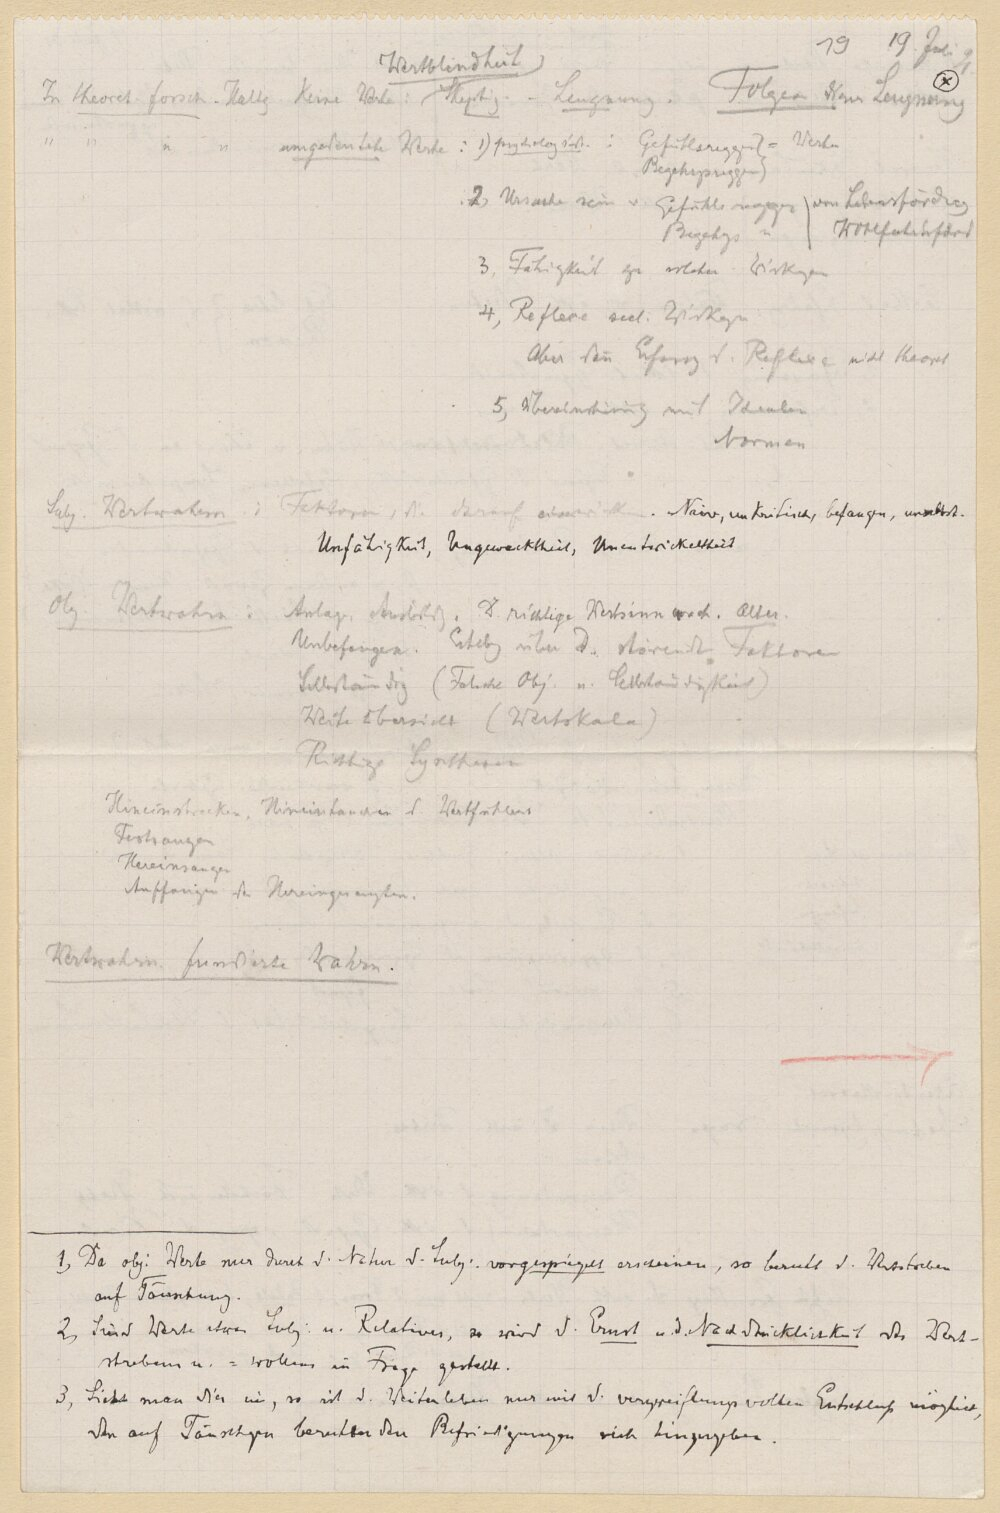 19 19. Juli
Wertblindheit
In theoret. forsch. Haltg keine Werte: Skeptiz. - Leugnung. Folgen dieser Leugnung
" " " " umgedeutete Werte: 1) psychologist.: Gefühlsreggen = Werte
Begehrgsreggen
2, Ursache sein v. Gefühlsreggen von Lebensförderg
Begehrgs " Wohlfahrtsförd
3, Fähigkeit zu solchen Wirkgen
4, Reflexe seel. Wirkgn
Aber dann Erfassg d. Reflexe nicht theoret
5, Übereinstimmg mit Idealen
Normen
Subj. Wertwahrn: Faktoren, die darauf einwirken. Naiv, unkritisch, befangen, unselbst.
Unfähigkeit, Ungewecktheit, Unentwickeltheit
Obj. Wertwahrn: Anlage, Ausbildg. D. richtige Wertsinn wach. Alter.
Unbefangen. Erhebg über d. störende Faktoren
Selbständig (Falsche Obj. u. Selbständigkeit)
Weite Übersicht (Wertskala)
Richtige Synthesen
Hineinstrecken, Hineintauchen d. Wertfühlens
Festsaugen
Hereinsaugen
Auffangen des Hereingesaugten.
Wertwahrn. fundierte Wahrn.
1, Da obj. Werte nur durch d. Natur d. Subj. vorgespiegelt erscheinen, so beruht d. Wertstreben
auf Täuschung.
2, Sind Werte etwas Subj. u. Relatives, so wird d. Ernst u. d. Nachdrücklichkeit des Wert-
strebens u. = wollens in Frage gestellt.
3, Sieht man dies ein, so ist d. Weiterleben nur mit d. verzweiflungsvollen Entschluß möglich,
den auf Täuschgen beruhenden Befriedigungen sich hinzugeben.